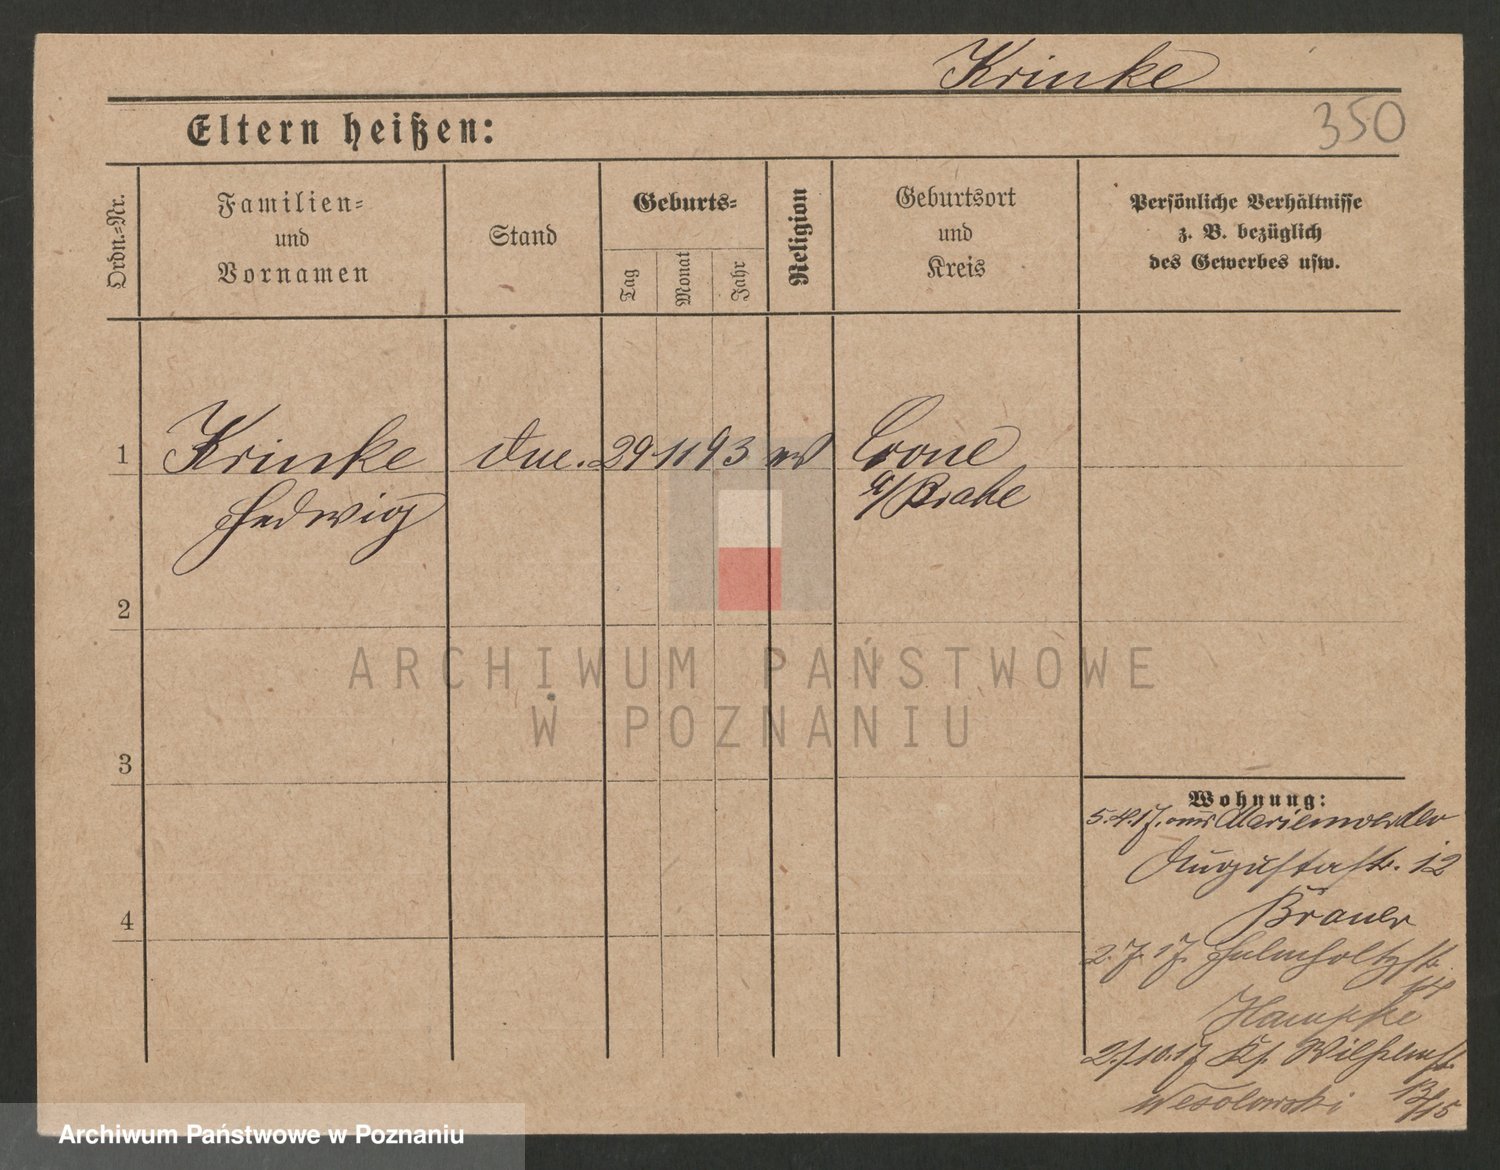 Krinke
350
Eltern heißen:
Ordn.-Nr.
Familien-
und
Vornamen
Stand
Geburts-
Tag
Monat
Jahr
Religion
Geburtsort
und
Kreis
Persönliche Verhältnisse
z. B. bezüglich
des Gewerbes usw.
1 Krinke 29 11 93 Crone
Hedwig a/Brahe
2
ARCHIWUM PAŃSTWOWE
W POZNANIU
3
Wohnung:
5.4.17. aus Marienwerder
Augustastr. 12
Brauer
4
2.7.17. Helmholtzstr.
Hampke
2/10.17 Kl. Wilhelmstr.
Wesolowski
Archiwum Państwowe w Poznaniu